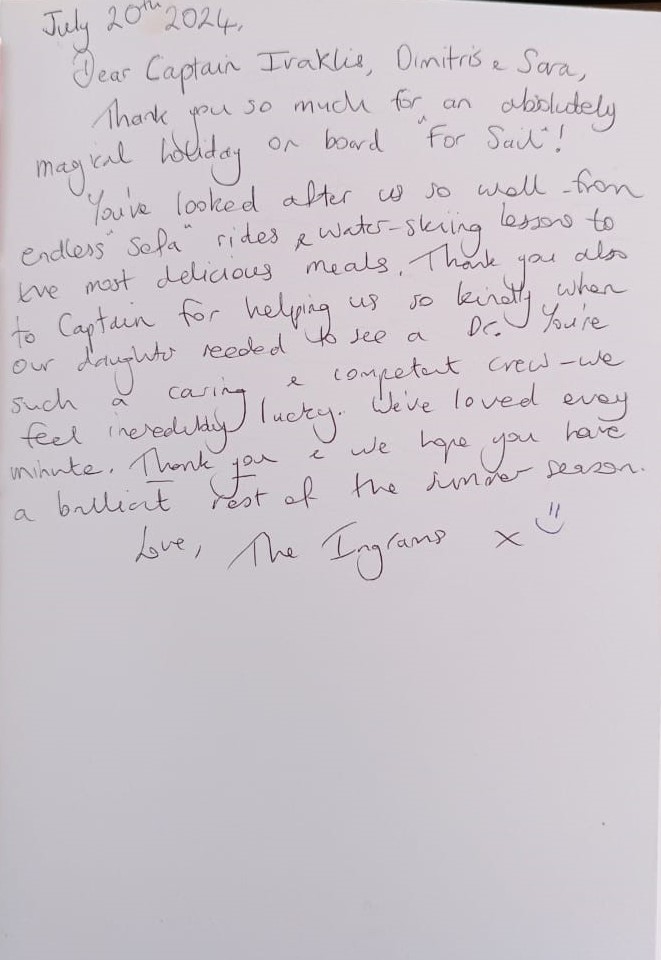 July 20th 2024.
Dear Captain Iraklis, Dimitris & Sara,
Thank you so much for an absolutely
magical holiday on board "For Sail"!
You've looked after us so well - from
endless "sofa" rides & water-skiing lessons to
the most delicious meals. Thank you also
to Captain for helping us so kindly when
our daughter needed to see a Dr. You're
such a caring & competent crew - we
feel incredibly lucky. We've loved every
minute. Thank you & we hope you have
a brilliant rest of the summer season.
Love, The Ingrams x